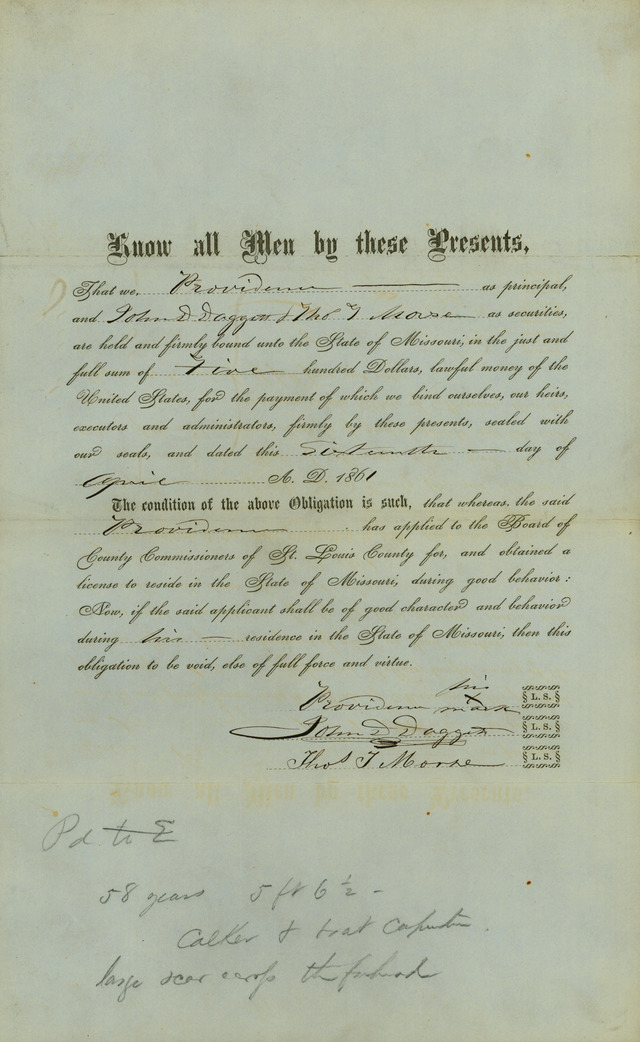 Know all Men by these Presents,
That we, Providence as principal,
and John D Daggett & Tho. T Morse as securities,
are held and firmly bound unto the State of Missouri, in the just and
full sum of Five hundred Dollars, lawful money of the
United States, for the payment of which we bind ourselves, our heirs,
executors and administrators, firmly by these presents, sealed with
our seals, and dated this Sixteenth day of
April A. D. 1861
The condition of the above Obligation is such, that whereas, the said
Providence has applied to the Board of
County Commissioners of St. Louis County for, and obtained a
license to reside in the State of Missouri, during good behavior:
Now, if the said applicant shall be of good character and behavior
during his residence in the State of Missouri, then this
obligation to be void, else of full force and virtue.
his
Providence X mark L. S.
John D Daggett L. S.
Thos T Morse L. S.
Pd to E
58 years 5 ft 6 1/2 -
Calker & boat carpenter.
large scar across the forhead